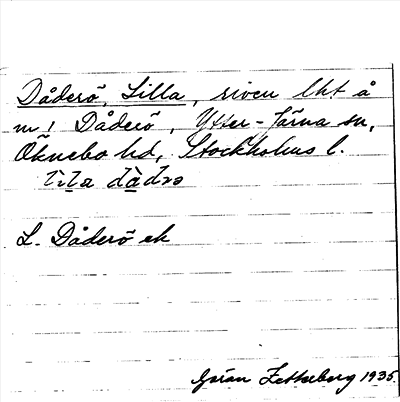 Dåderö, Lilla, riven lht å
m! Dåderö, Ytter-Järna sn,
Öknebo hd, Stockholms l.
L. Dåderö ek
Göran Zetterberg 1935.